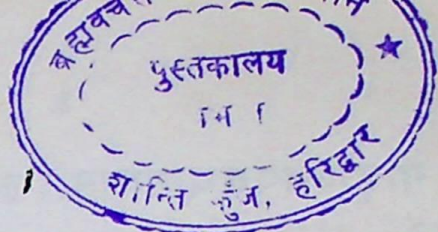 ब्रह्मवर्च
पुस्तकालय
शान्ति कुँज, हरिद्वार